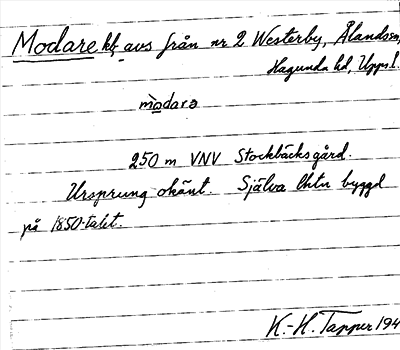 Modare kf avs från nr 2 Westerby, Ålandssn,
Hagunda hd, Upps l.
mòdara
250 m VNV Stockbäcksgård.
Ursprung okänt. Själva lhtn byggd
på 1850-talet.
K.-H. Tapper 194